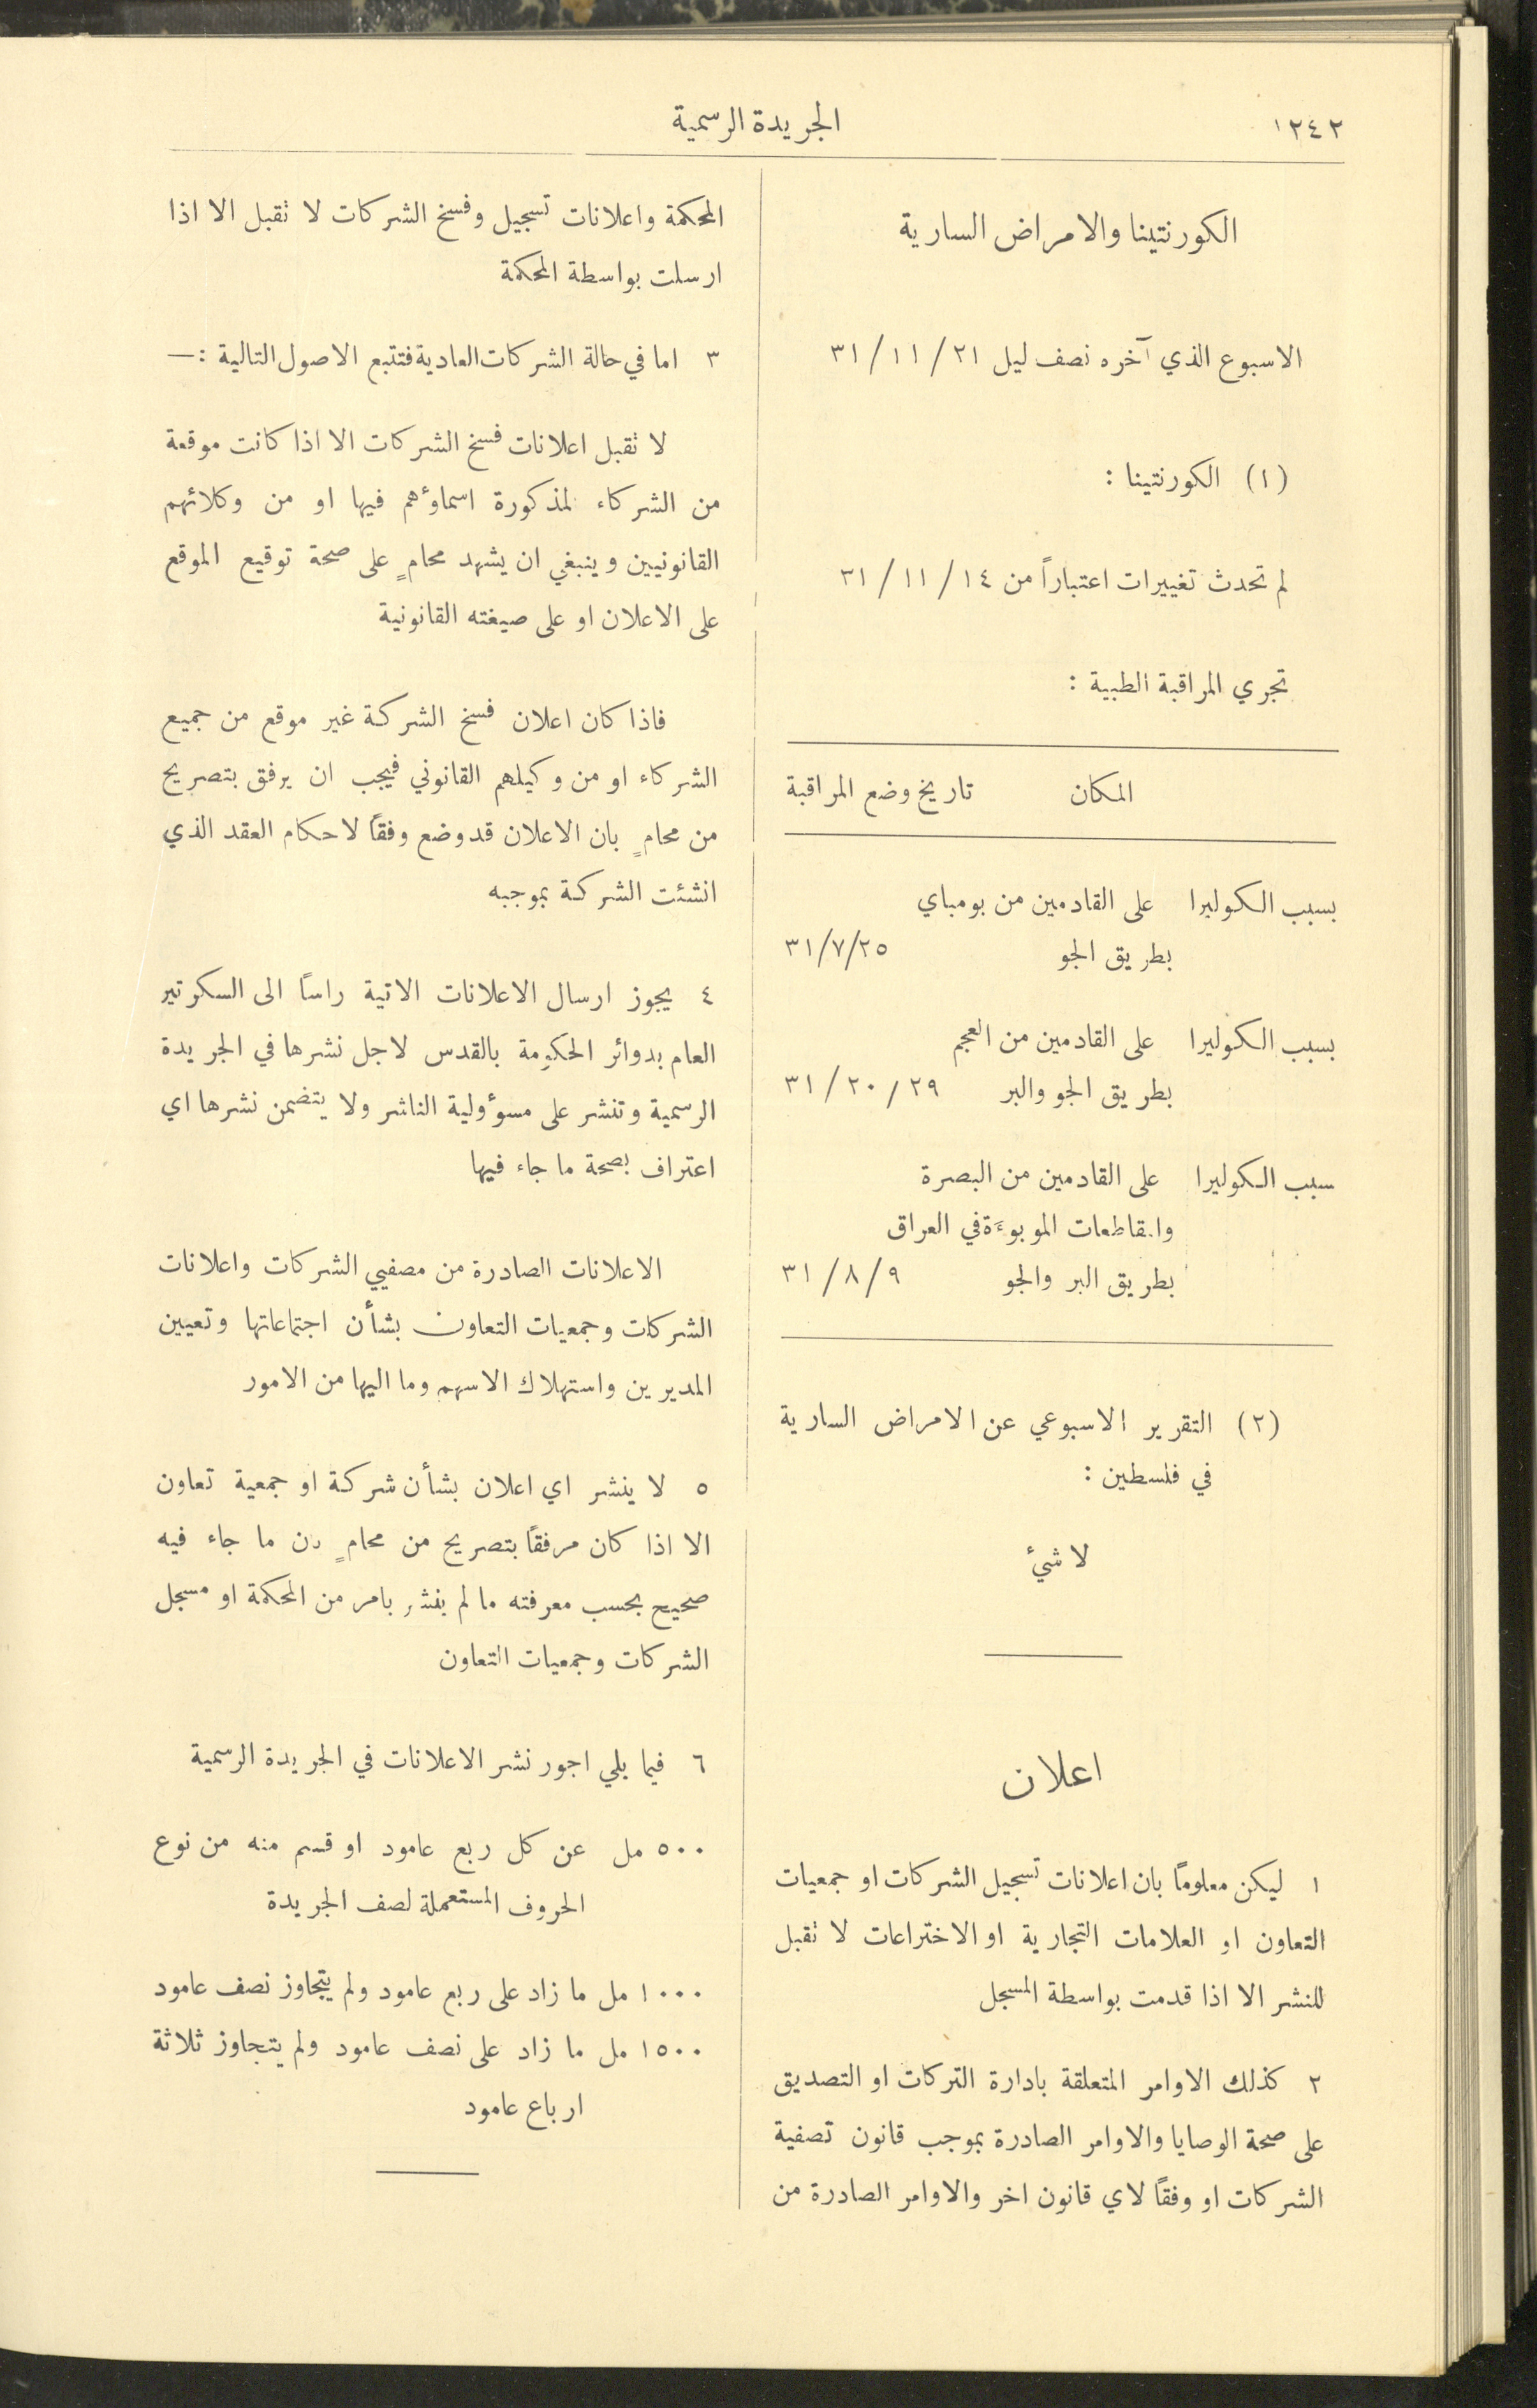 ١٢٤٢
الجريدة الرسمية
الكورنتينا والامراض السارية
الاسبوع الذي آخره نصف ليل ٢١ / ١١ / ٣١
(١) الكورنتينا :
لم تحدث تغييرات اعتباراً من ١٤ / ١١ / ٣١
تجري المراقبة الطبية :
المكان تاريخ وضع المراقبة
بسبب الكوليرا على القادمين من بومباي
بطريق الجو ٣١/٧/٢٥
بسبب الكوليرا على القادمين من العجم
بطريق الجو والبر ٢٩ / ٢٠ / ٣١
سبب الكوليرا على القادمين من البصرة
والمقاطعات الموبوءة في العراق
بطريق البر والجو ٩ / ٨ / ٣١
(٢) التقرير الاسبوعي عن الامراض السارية
في فلسطين :
لا شيء
اعلان
١ ليكن معلوماً بان اعلانات تسجيل الشركات او جمعيات
التعاون او العلامات التجارية او الاختراعات لا تقبل
للنشر الا اذا قدمت بواسطة المسجل
٢ كذلك الاوامر المتعلقة بادارة التركات او التصديق
على صحة الوصايا والاوامر الصادرة بموجب قانون تصفية
الشركات او وفقاً لاي قانون اخر والاوامر الصادرة من
المحكمة واعلانات تسجيل وفسخ الشركات لا تقبل الا اذا
ارسلت بواسطة المحكمة
٣ اما في حالة الشركات العادية فتتبع الاصول التالية : —
لا تقبل اعلانات فسخ الشركات الا اذا كانت موقعة
من الشركاء المذكورة اسماؤهم فيها او من وكلائهم
القانونيين وينبغي ان يشهد محامٍ على صحة توقيع الموقع
على الاعلان او على صيغته القانونية
فاذا كان اعلان فسخ الشركة غير موقع من جميع
الشركاء او من وكيلهم القانوني فيجب ان يرفق بتصريح
من محامٍ بان الاعلان قد وضع وفقاً لاحكام العقد الذي
انشئت الشركة بموجبه
٤ يجوز ارسال الاعلانات الاتية راساً الى السكرتير
العام بدوائر الحكومة بالقدس لاجل نشرها في الجريدة
الرسمية وتنشر على مسوؤولية الناشر ولا يتضمن نشرها اي
اعتراف بصحة ما جاء فيها
الاعلانات الصادرة من مصفيي الشركات واعلانات
الشركات وجمعيات التعاون بشأن اجتماعاتها وتعيين
المديرين واستهلاك الاسهم وما اليها من الامور
٥ لا ينشر اي اعلان بشأن شركة او جمعية تعاون
الا اذا كان مرفقاً بتصريح من محامٍ ان ما جاء فيه
صحيح بحسب معرفته ما لم ينشر بامر من المحكمة او مسجل
الشركات وجمعيات التعاون
٦ فيما يلي اجور نشر الاعلانات في الجريدة الرسمية
٥٠٠ مل عن كل ربع عامود او قسم منه من نوع
الحروف المستعملة لصف الجريدة
١٠٠٠ مل ما زاد على ربع عامود ولم يتجاوز نصف عامود
١٥٠٠ مل ما زاد على نصف عامود ولم يتجاوز ثلاثة
ارباع عامود